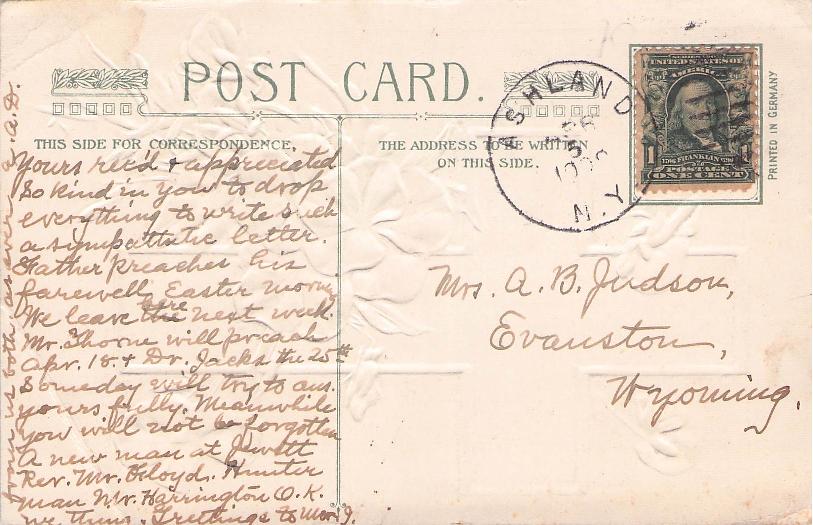 POST CARD.
THIS SIDE FOR CORRESPONDENCE.
THE ADDRESS TO BE WRITTEN
ON THIS SIDE.
PRINTED IN GERMANY
ASHLAND
N.Y.
UNITED STATES OF
AMERICA
1 FRANKLIN 1
POSTAGE
ONE CENT
Yours rec'd & appreciated
So kind in you to drop
everything to write such
a sympathetic letter.
Father preaches his
farewell Easter morning
We leave here the next week.
Mr. Thorne will preach
Apr. 18 & Dr. Jacks the 25th
Someday will try to ans.
yours fully. Meanwhile
you will not be forgotten
A new man at Jewett
Rev. Mr. Floyd. Hunter
man Mr. Harrington O.K.
we think. Greetings to
from us both as ever A.D.
Mrs. A. B. Judson,
Evanston,
Wyoming.